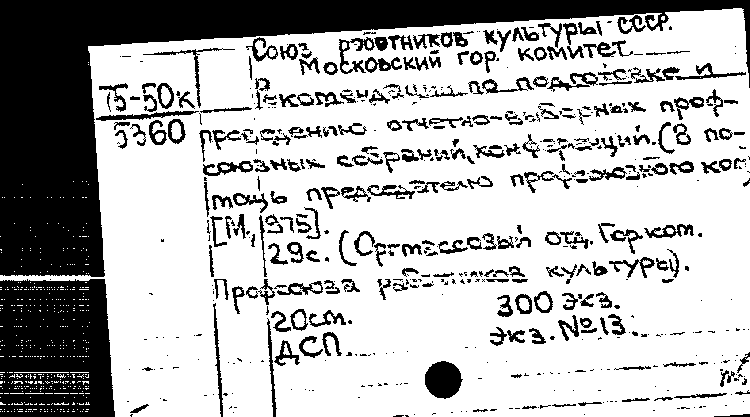 Союз работников культуры СССР.
Московский гор. комитет.
75-50к
Рекомендации по подготовке и
5360
проведению отчетно-выборных проф-
союзных собраний, конференций. (В по-
мощь председателю профсоюзного ком
[М., 1975].
29с. (Оргмассовый отд. Гор.ком.
Профсоюза работников культуры).
20см. 300 экз.
ДСП. экз. №13.